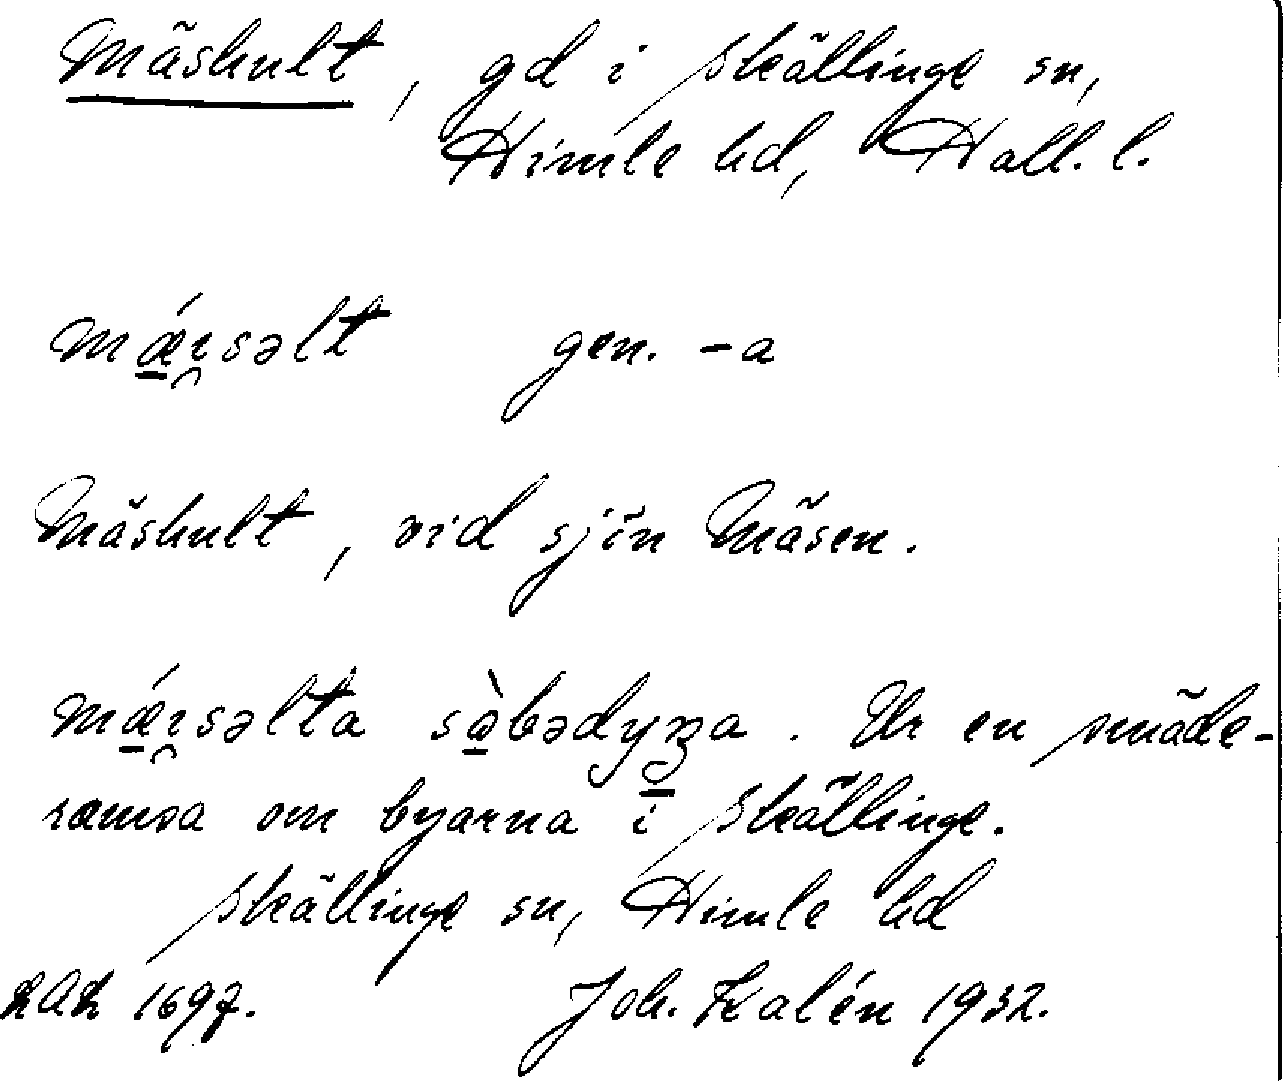 Mäshult, gd i Skällinge sn,
Himle hd, Hall. l.
mǽrsəlt gen. -a
Mäshult, vid sjön Mäsen.
mǽrsəlta . Ur en smäde-
ramsa om byarna i Skällinge.
Skällinge sn, Himle hd
1697. Joh. Kalén 1932.